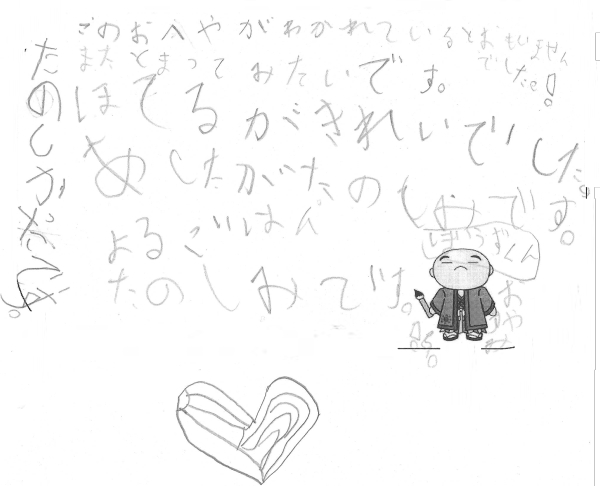 このおへやがわかれているとおもいません
でした。!
またとまってみたいです。
ほてるがきれいでした。
めしたがたのしみです。
よるごはん
たのしみです。
ぼうずくん
おやみ